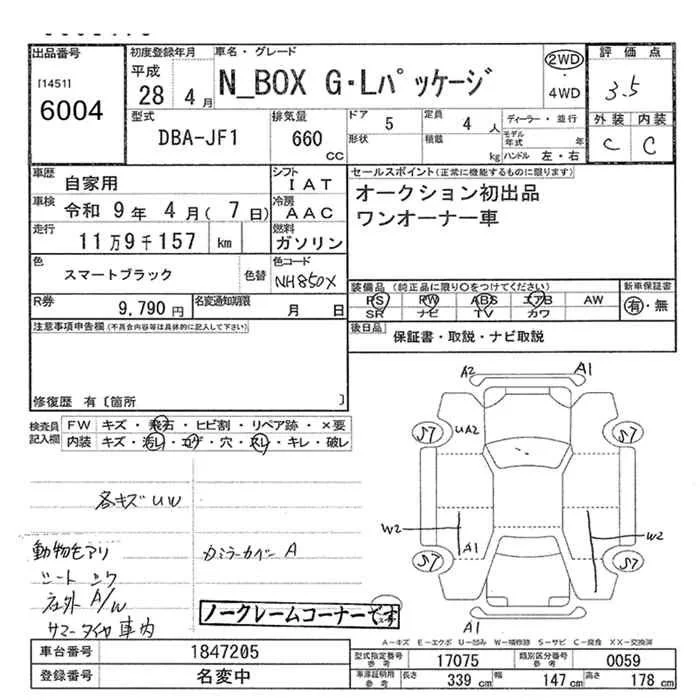 出品番号
[1451]
6004
初度登録年月
平成
28 4月
車名・グレード
N_BOX G・Lパッケージ
2WD
・
4WD
評価点
3.5
外装 内装
C C
型式
DBA-JF1
排気量
660
CC
ドア 5
定員 4人
形状
積載 kg
ディーラー・並行
モデル年式 年
ハンドル 左・右
車歴 自家用
シフト IAT
車検 令和 9年 4月( 7日)
冷房 AAC
走行 11万9千157 km
燃料 ガソリン
色 スマートブラック
色替
色コード NH850X
R券 9,790円
名変通知期限 月 日
セールスポイント(正常に機能するものに限ります)
オークション初出品
ワンオーナー車
装備品 (純正品に限り○をつけてください)
PS PW ABS エアB AW
SR ナビ TV カワ
新車保証書
有・無
後日品 保証書・取説・ナビ取説
注意事項申告欄(不具合内容等は具体的に記入して下さい)
修復歴 有〔箇所 〕
検査員記入欄
FW キズ・飛石・ヒビ割・リペア跡・×要
内装 キズ・汚レ・コゲ・穴・スレ・キレ・破レ
各キズUW
動物毛アリ
シートシワ
社外A/W
サマータイヤ車内
カミラーカバーA
ノークレームコーナーです
A2 A1
57 UA2 57
W2 A1 W2
57 57
A1
A-キズ E-エクボ U-凹み W-補修跡 S-サビ C-腐食 XX-交換済
車台番号 1847205
登録番号 名変中
型式指定番号 参考 17075
類別区分番号 参考 0059
車庫証明用 参考 長さ 339cm 幅 147cm 高さ 178cm